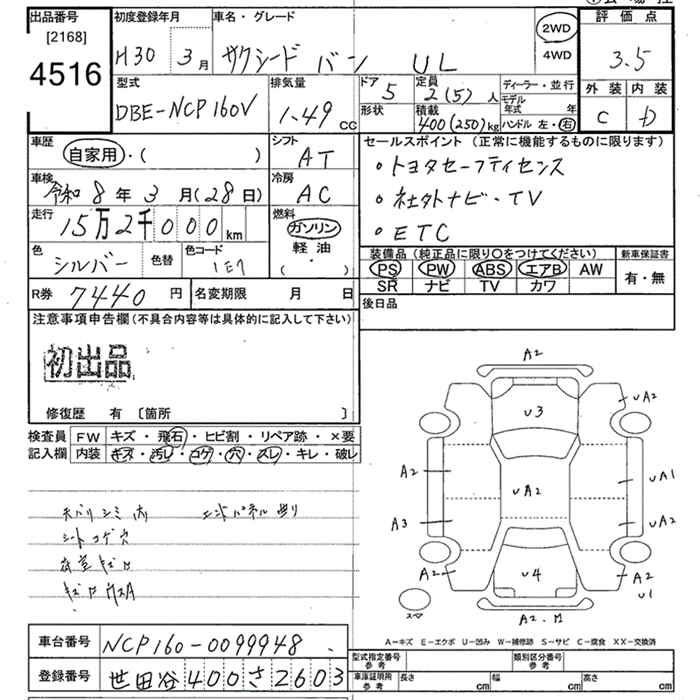 出品番号
[2168]
4516
初度登録年月
H30 3月
車名・グレード
サクシード バン UL
2WD
4WD
評価点
3.5
外装 内装
C D
型式
DBE-NCP160V
排気量
1.49 cc
ドア 5
形状
定員
2(5)人
積載
400(250)kg
ディーラー・並行
モデル年式 年
ハンドル 左・右
車歴
自家用・( )
シフト
AT
車検
令和8年3月(28日)
冷房
AC
走行
15万2千000km
燃料
ガソリン
軽油
( )
色
シルバー
色替
色コード
1E7
R券 7440円
名変期限 月 日
セールスポイント (正常に機能するものに限ります)
・トヨタセーフティセンス
・社外ナビ・TV
・ETC
装備品(純正品に限り〇をつけてください)
PS PW ABS エアB AW
SR ナビ TV カワ
新車保証書
有・無
後日品
注意事項申告欄(不具合内容等は具体的に記入して下さい)
初出品
修復歴 有 〔箇所 〕
検査員記入欄
FW キズ・飛石・ヒビ割・リペア跡・×要
内装 キズ・汚レ・コゲ・穴・スレ・キレ・破レ
天バリシミ 内 エンドパネル曲り
シートコゲ穴
荷室キズ
A2
U3
UA2
A2
UA1
UA2
A3
UA2
A2
U4
A2
U1
スペア
A2.M
A-キズ E-エクボ U-凹み W-補修跡 S-サビ C-腐食 XX-交換済
車台番号 NCP160-0099948
登録番号 世田谷400さ2603
型式指定番号
参考
類別区分番号
参考
車庫証明用
参考
長さ cm 幅 cm 高さ cm